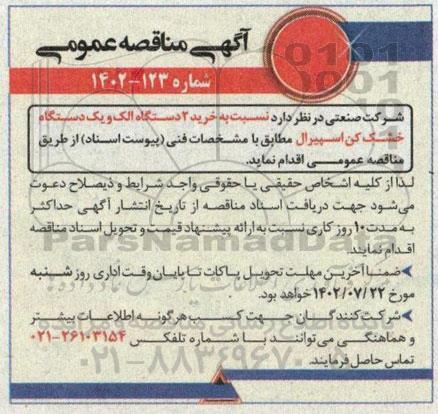 آگهی مناقصه عمومی
شماره ۱۲۳-۱۴۰۲
شرکت صنعتی در نظر دارد نسبت به خرید ۲ دستگاه الک و یک دستگاه
خشک کن اسپیرال مطابق با مشخصات فنی (پیوست اسناد) از طریق
مناقصه عمومی اقدام نماید.
لذا از کلیه اشخاص حقیقی یا حقوقی واجد شرایط و ذیصلاح دعوت
می‌شود جهت دریافت اسناد مناقصه از تاریخ انتشار آگهی حداکثر
به مدت ۱۰ روز کاری نسبت به ارائه پیشنهاد قیمت و تحویل اسناد مناقصه
اقدام نمایند.
ضمنا آخرین مهلت تحویل پاکات تا پایان وقت اداری روز شنبه
مورخ ۱۴۰۲/۰۷/۲۲ خواهد بود.
شرکت کنندگان جهت کسب هرگونه اطلاعات بیشتر
و هماهنگی می‌توانند با شماره تلفکس ۲۶۱۰۳۱۵۴-۰۲۱
تماس حاصل فرمایند.
ParsNamadData
۰۲۱-۸۸۳۴۹۶۷۰